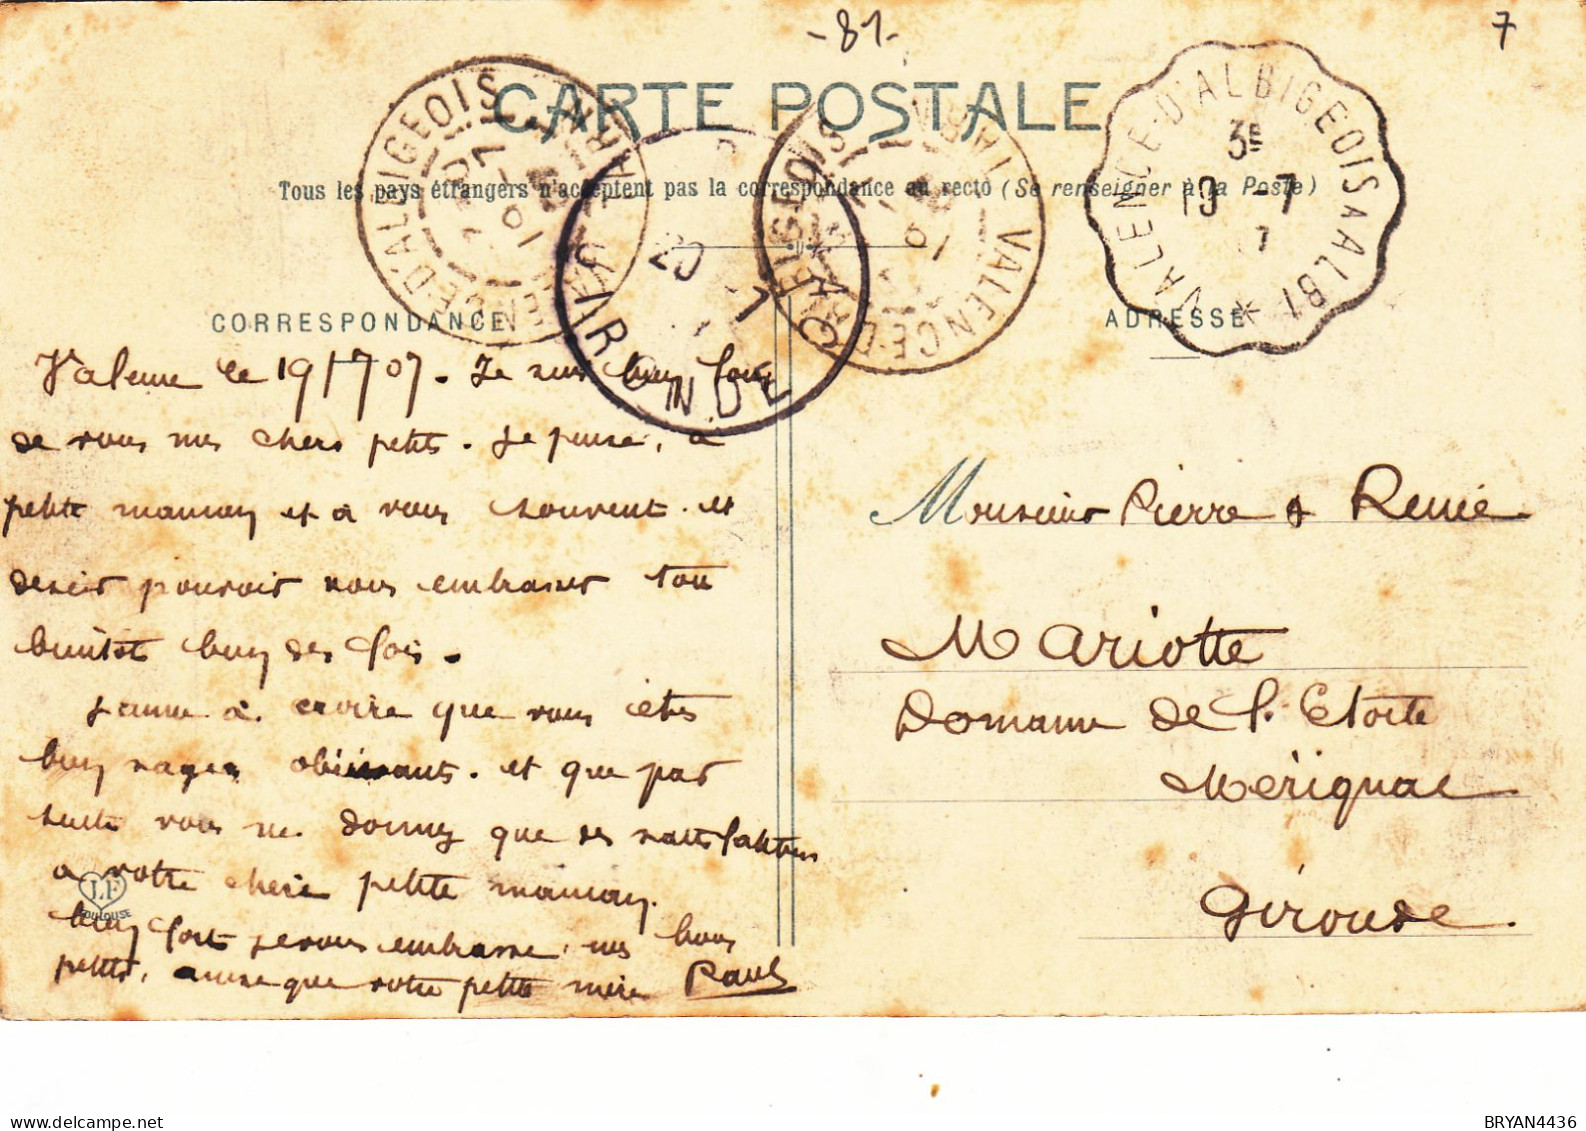 -81-
7
CARTE POSTALE
Tous les pays étrangers n'acceptent pas la correspondance au recto (Se renseigner à la Poste)
VALENCE-D'ALBIGEOIS TARN
GIRONDE
20 7
VALENCE-D'ALBIGEOIS TARN
VALENCE-D'ALBIGEOIS A ALBI
3E
19 -7
7
CORRESPONDANCE
ADRESSE
Valence le 19/7 07. Je suis bien loin
de vous mes chers petits. Je pense, à
petite maman et à vous souvent. et
désire pouvoir vous embrasser tou
bientôt bien des fois.
J'aime à croire que vous êtes
bien sages obéissants. et que par
suite vous ne donnez que des satisfactions
a votre chérie petite maman.
bien fort je vous embrasse. mes bons
petits, ainsi que votre petite mère Paul
LF
TOULOUSE
Monsieur Pierre & Renée
Mariotte
Domaine de l'Etoile
Mérignac
Gironde.
BRYAN4436